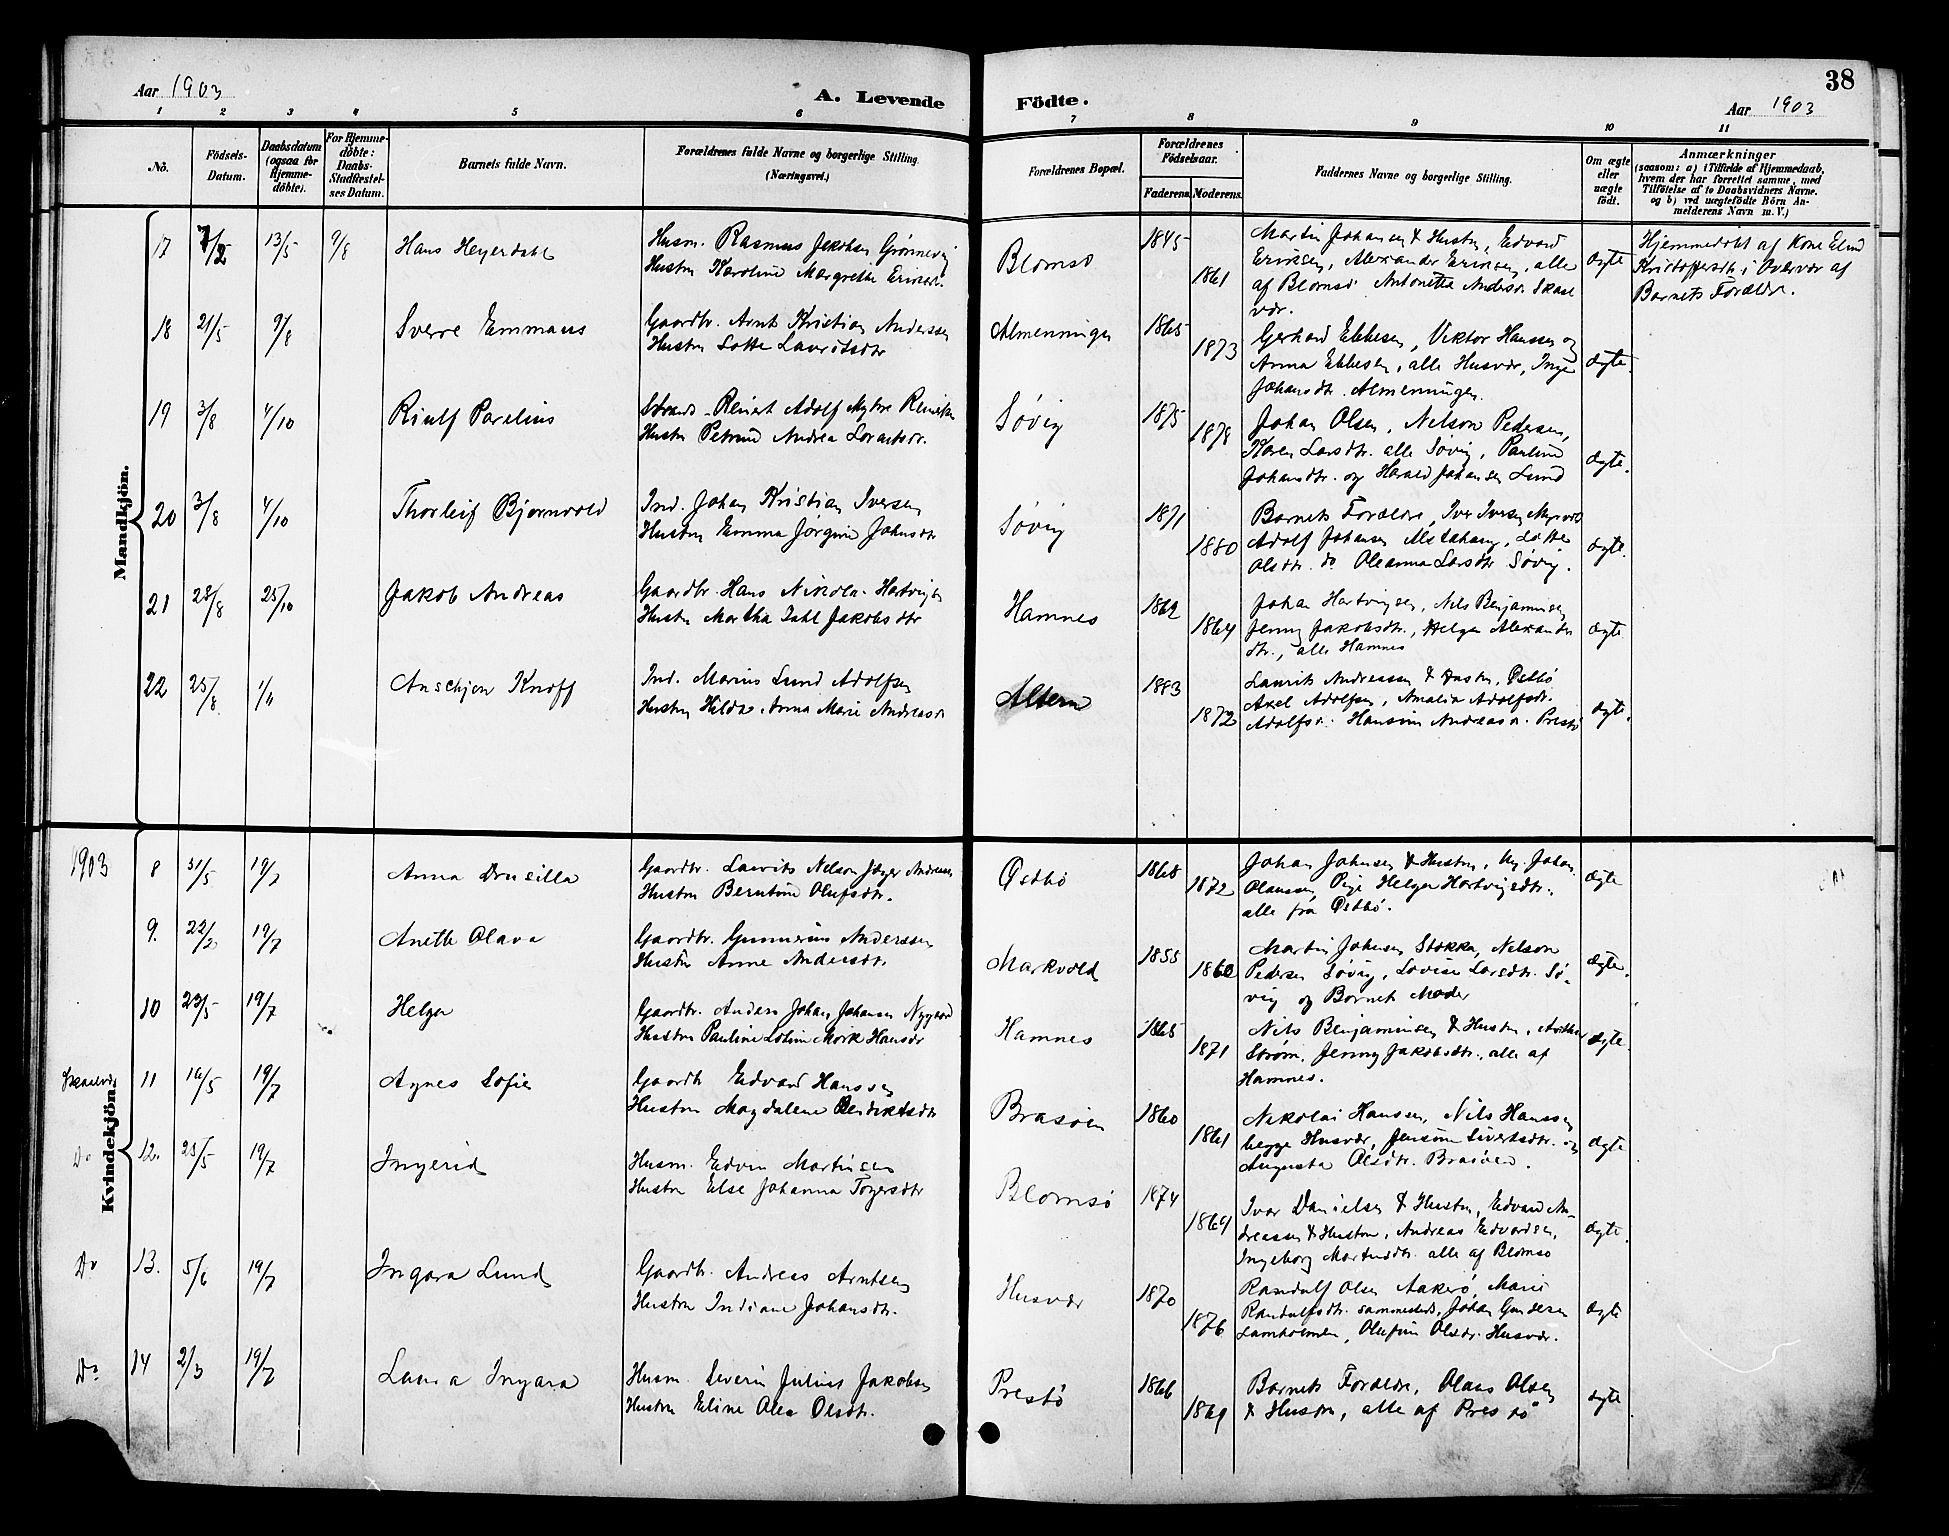 38
Aar 1903
A. Levende
Fødte.
Aar 1903
1 2 3 4 5 6 7 8 9 10 11
No.
Fødsels-
Datum.
Daabsdatum
(ogsaa for
Hjemme-
døbte).
For Hjemme-
døbte:
Daabs-
Stadfæstel-
ses Datum.
Barnets fulde Navn.
Forældrenes fulde Navne og borgerlige Stilling.
(Næringsvei.)
Forældrenes Bopæl.
Forældrenes
Fødselsaar.
Faderens. Moderens.
Faddernes Navne og borgerlige Stilling.
Om ægte
eller
uægte
født.
Anmærkninger
(saasom: a) i Tilfælde af Hjemmedaab,
hvem der har forrettet samme, med
Tilføielse af to Daabsvidners Navne.
og b) ved uægtefødte Børn An-
melderens Navn m. V.)
Mandkjøn.
17 7/2 13/5 9/8 Hans Heyerdahl
Husm. Rasmus Jakobsen Grønnevig
Hustru Karoline Margrethe Eriksd.
Blomsø 1845 1861
Martin Johansen & Hustru, Edvard
Eriksen, Alexander Eriksen, alle
af Blomsø. Antonetta Andersd. Skaal
vær.
ægte
Hjemmedøbt af Kone Elen
Kristoffersdtr i Overvær af
Barnets Forældre.
18 21/5 9/8 Sverre Emmaus
Gaardbr. Arnt Kristian Anderssen
Hustru Lotte Lauritsdtr
Almenningen 1865 1873
Gerhard Ebbesen, Viktor Hanssen og
Anna Ebbesen, alle Husvær, Inge
Johansdtr. Almenningen.
ægte.
19 3/8 4/10 Riulf Parelius
Reinert Adolf Myhre
Hustru Petrine Andrea
Søvig 1875 1878
Johan Olsen, Nelson Pedersen,
Karen Larsdtr. alle Søvig, Pauline
Johansdtr. og Harald Johansen Lund
ægte.
20 3/8 4/10 Thorleif Bjørnvold
Ind. Johan Kristian Iversen
Hustru Emma Jørgine Johnsdtr
Søvig 1871 1880
Barnets Forældre, Iver Iversen
Adolf Johansen Alstahaug, Lotte
Olsdtr. do Oleanna Larsdtr Søvig.
ægte.
21 28/8 25/10 Jakob Andreas
Gaardbr. Hans Nikolai Hartvigsen
Hustru Martha Dahl Jakobsdtr
Hamnes 1862 1864
Johan Hartvigsen, Nils Benjaminsen,
Jenny Jakobsdtr., Helga Alexander
dtr., alle Hamnes
ægte.
22 25/8 1/11 Anschjøn Knoff
Ind. Marius Lund Adolfsen
Hustru Hilda Anna Marie Andreasd.
Altern 1883 1872
Laurits Andreassen & Hustru, Østbø
Axel Adolfsen, Amalia Adolfsdr.
Adolfsd. Hansine Andreasd. Prestø
ægte.
Kvindekjøn.
1903 8 31/5 19/7 Anna Drusilla
Gaardbr. Laurits Nelson Jæger Andreas
Hustru Berntine Olufsdtr.
Østbø 1868 1872
Johan Johnsen & Hustru, Ug. Johan
Olaussen, Pige Helga Hartvigsdtr.
alle fra Østbø.
ægte
9. 22/2 19/7 Anette Olava
Gaardbr. Gunnerius Anderssen
Hustru Anne Andersdtr.
Markvold 1855 1860
Martin Johnsen Stokka, Nelson
Pedersen Søvig, Lovise Larsdtr. Sø-
vig og Barnets Moder
ægte.
10 23/5 19/7 Helga
Gaardbr. Anders Johan Johansen Nygaard
Hustru Pauline Lotine Mørk Hansdr
Hamnes 1865 1871
Nils Benjaminsen & Hustru, Arthur
Strøm, Jenny Jakobsdtr., alle af
Hamnes.
ægte.
Skaalvær 11 16/5 19/7 Agnes Sofie
Gaardb. Edvard Hanssen
Hustru Magdalene Bendiktsdtr
Brasøen 1860 1861
Nikolai Hanssen, Nils Hanssen
begge Husvær, Jensine Sivertsdtr. og
Augusta Olsdtr. Brasøen.
ægte
Do 12. 25/5 19/7 Ingerid
Husm. Edvin Martinsen
Hustru Else Johanna Torgersdtr
Blomsø 1874 1864
Ivar Danielsen & Hustru, Edvard An-
dreassen & Hustru, Andreas Edvardsen,
Ingeborg Martinsdtr. alle af Blomsø
ægte.
Do 13. 5/6 19/7 Ingara Lund
Gaardbr. Andreas Arntsen
Hustru Indiane Johansdtr.
Husvær 1870 1876
Randulf Olsen Aakerø, Marie
Randulfsdtr. sammesteds, Johan Gundersen
Lamholmen, Olufine Olsdr. Husvær.
ægte
Do. 14 2/3 19/7 Laura Ingara
Husm. Severin Julius Jakobsen
Hustru Eline Olea Olsdtr.
Prestø 1866 1869
Barnets Forældre, Olaus Olsen
& Hustru, alle af Prestø
ægte